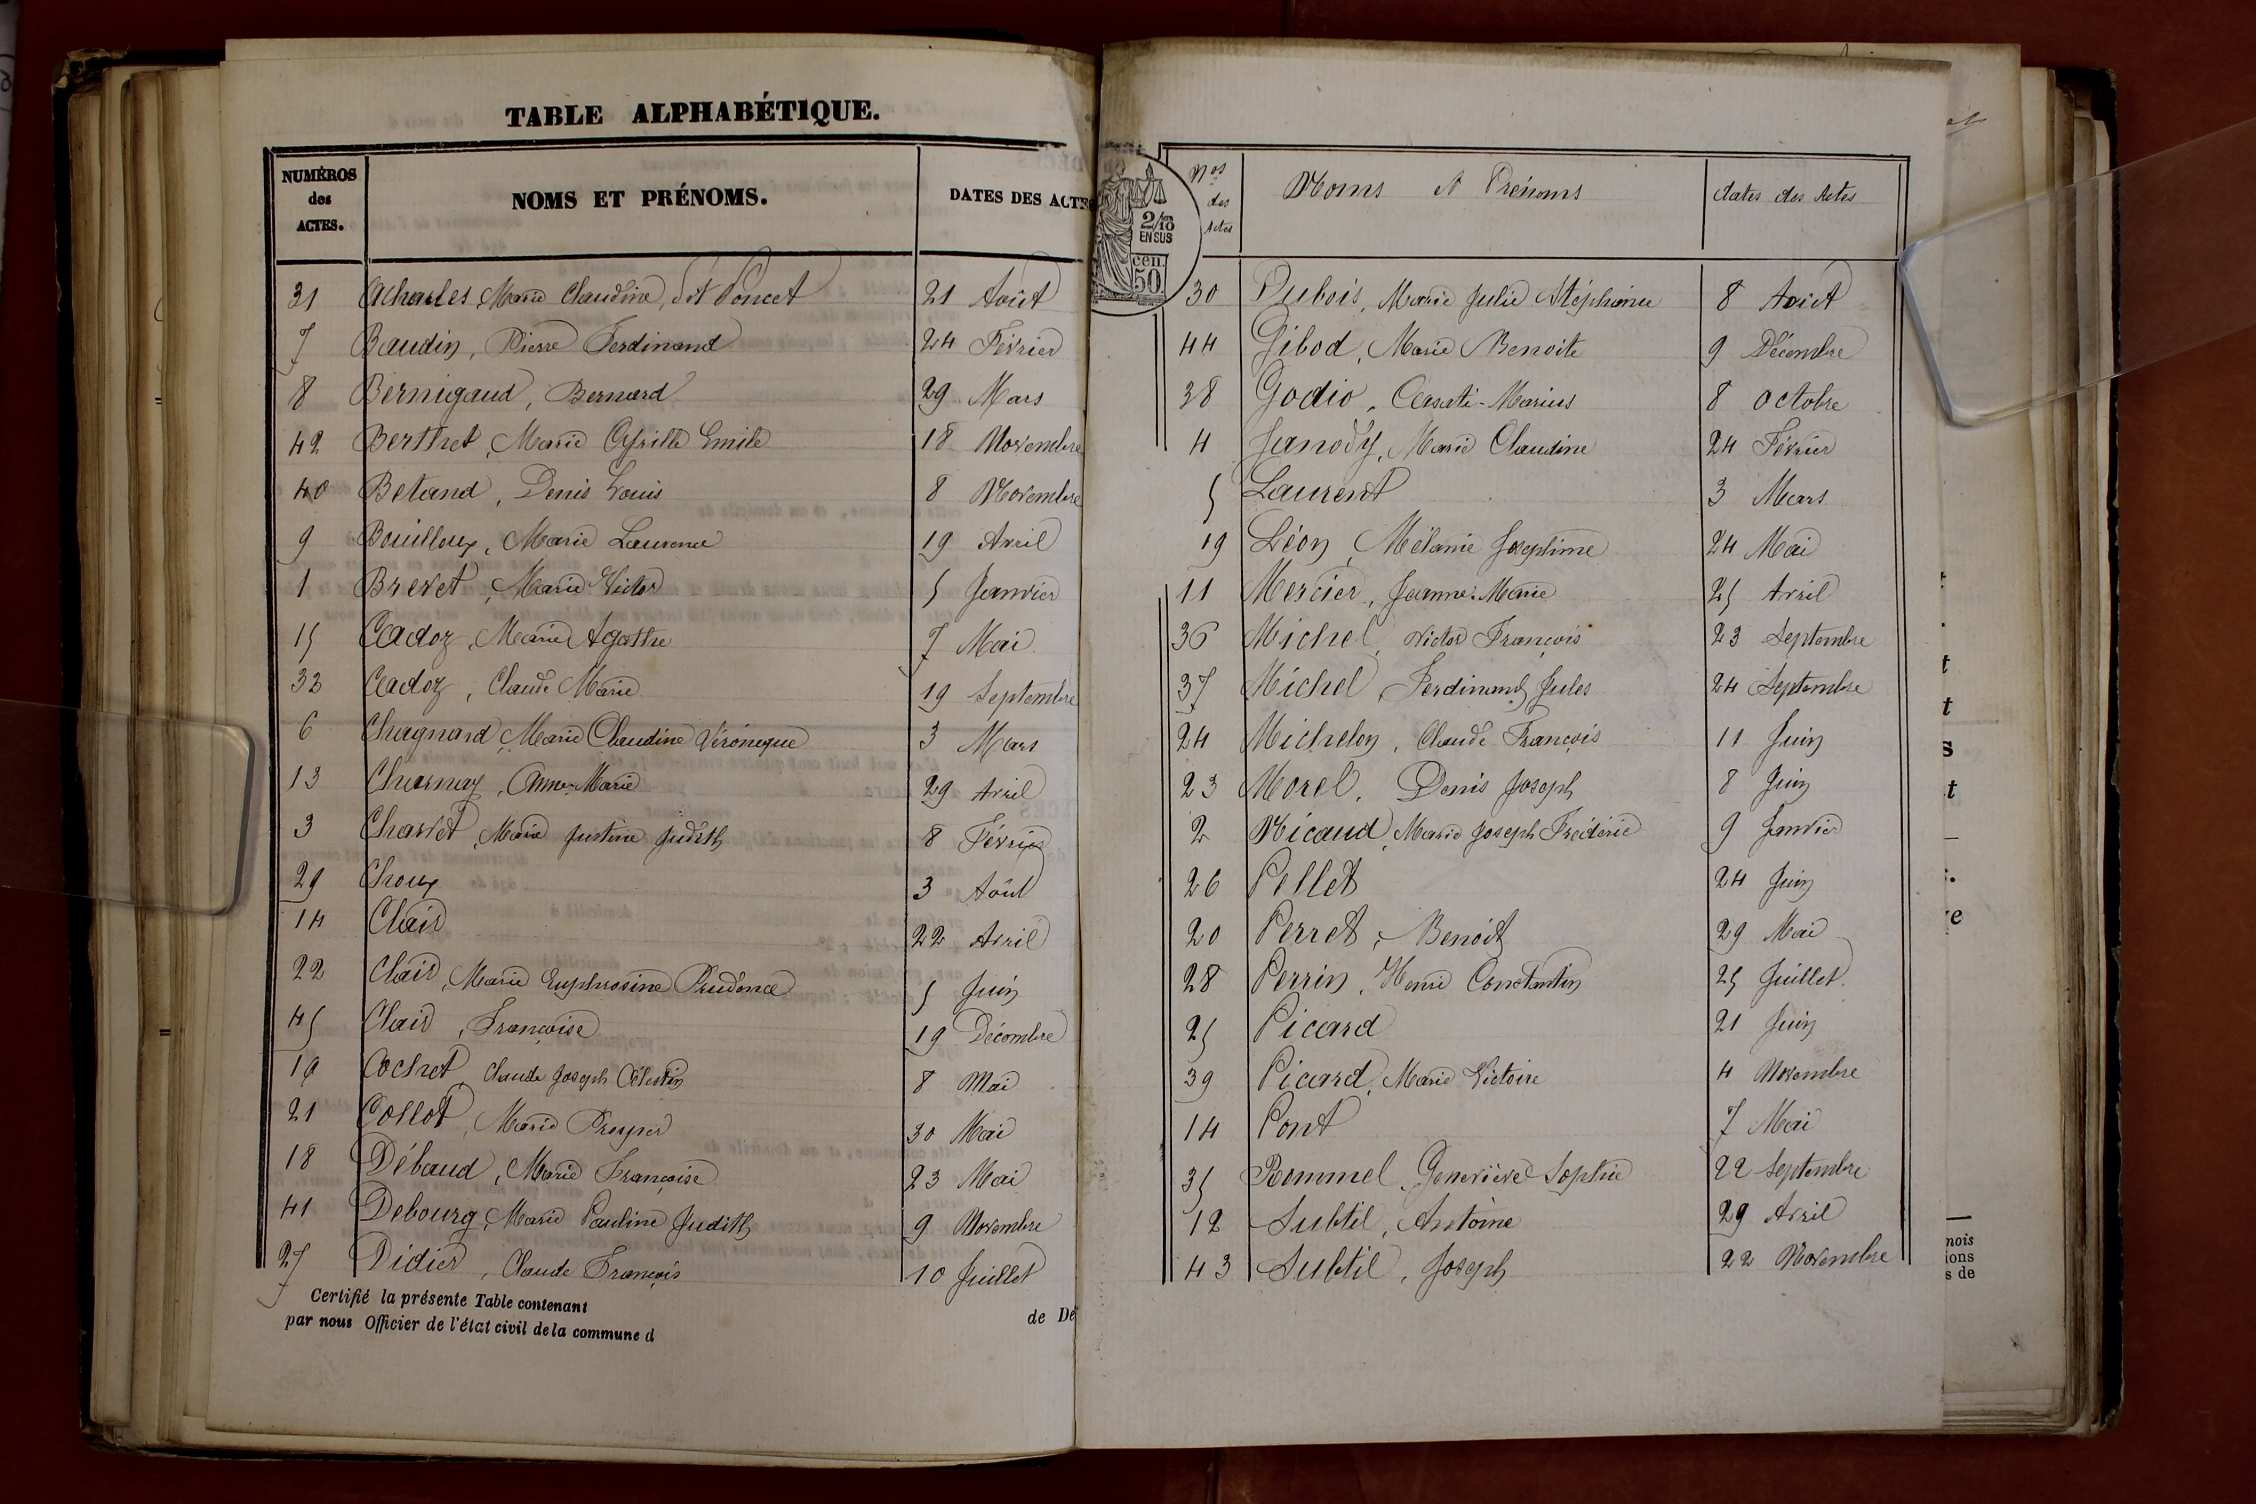 TABLE ALPHABÉTIQUE.
NUMÉROS des ACTES. NOMS ET PRÉNOMS. DATES DES ACTES
31 Acharles, Marie Claudine, dit Poncet 21 Août
7 Baudin, Pierre Ferdinand 24 Février
8 Bernigaud, Bernard 29 Mars
42 Berthet, Marie Cyrille Emile 18 Novembre
40 Betand, Denis Louis 8 Novembre
9 Bouilloux, Marie Laurence 19 Avril
1 Brevet, Marie Victor 5 Janvier
15 Cadoz, Marie Agathe 7 Mai
32 Cadoz, Claude Marie 19 Septembre
6 Chagnard, Marie Claudine Véronique 3 Mars
13 Charnay, Anne-Marie 29 Avril
3 Charlet, Marie Justine Judith 8 Février
29 Choux 3 Août
14 Clair 22 Avril
22 Clair, Marie Euphrosine Prudence 5 Juin
45 Clair, Françoise 19 Décembre
19 Cochet, Claude Joseph Célestin 8 Mai
21 Collot, Marie Prosper 30 Mai
18 Débaud, Marie Françoise 23 Mai
41 Debourg, Marie Pauline Judith 9 Novembre
27 Didier, Claude François 10 Juillet
Certifié la présente Table contenant
par nous Officier de l'état civil de la commune d
de Dé
2/10
EN SUS
cen.
50
Nos des Actes Noms et Prénoms dates des Actes
30 Dubois, Marie Julie Stéphanie 8 Août
44 Gibod, Marie Benoite 9 Décembre
38 Godio, Cersati-Marius 8 octobre
4 Janody, Marie Claudine 24 Février
5 Laurent 3 Mars
19 Léon, Mélanie Joséphine 24 Mai
11 Mercier, Jeanne-Marie 25 Avril
36 Michel, Victor François 23 Septembre
37 Michel, Ferdinand Jules 24 Septembre
24 Michelon, Claude François 11 Juin
23 Morel, Denis Joseph 8 Juin
2 Nicaud, Marie Joseph Frédéric 9 Janvier
26 Pellet 24 Juin
20 Perret, Benoit 29 Mai
28 Perrin, Henri Constantin 25 Juillet
25 Picard 21 Juin
39 Picard, Marie Victoire 4 Novembre
14 Pont 7 Mai
35 Rommel, Geneviève Sophie 22 Septembre
12 Subtil, Antoine 29 Avril
43 Subtil, Joseph 22 Novembre
nois
ions
s de